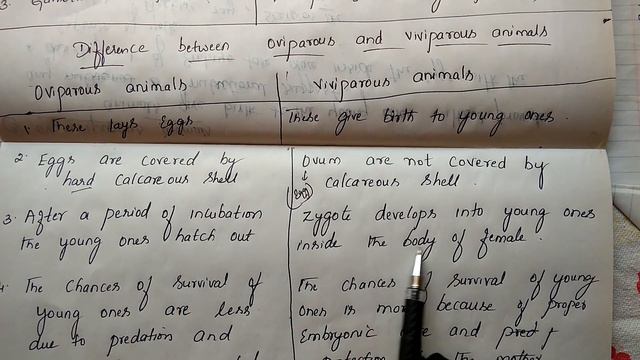 3.
Difference between oviparous and viviparous animals
Oviparous animals
viviparous animals
1. These lays Eggs
These give birth to young ones.
2. Eggs are covered by
hard calcareous shell
Ovum are not covered by
(Egg) calcareous shell.
3. After a period of incubation
the young ones hatch out
Zygote develops into young ones
inside the body of female.
4. The chances of survival of
young ones are less
due to predation and
The chances of survival of young
ones is more because of proper
Embryonic and
the mother